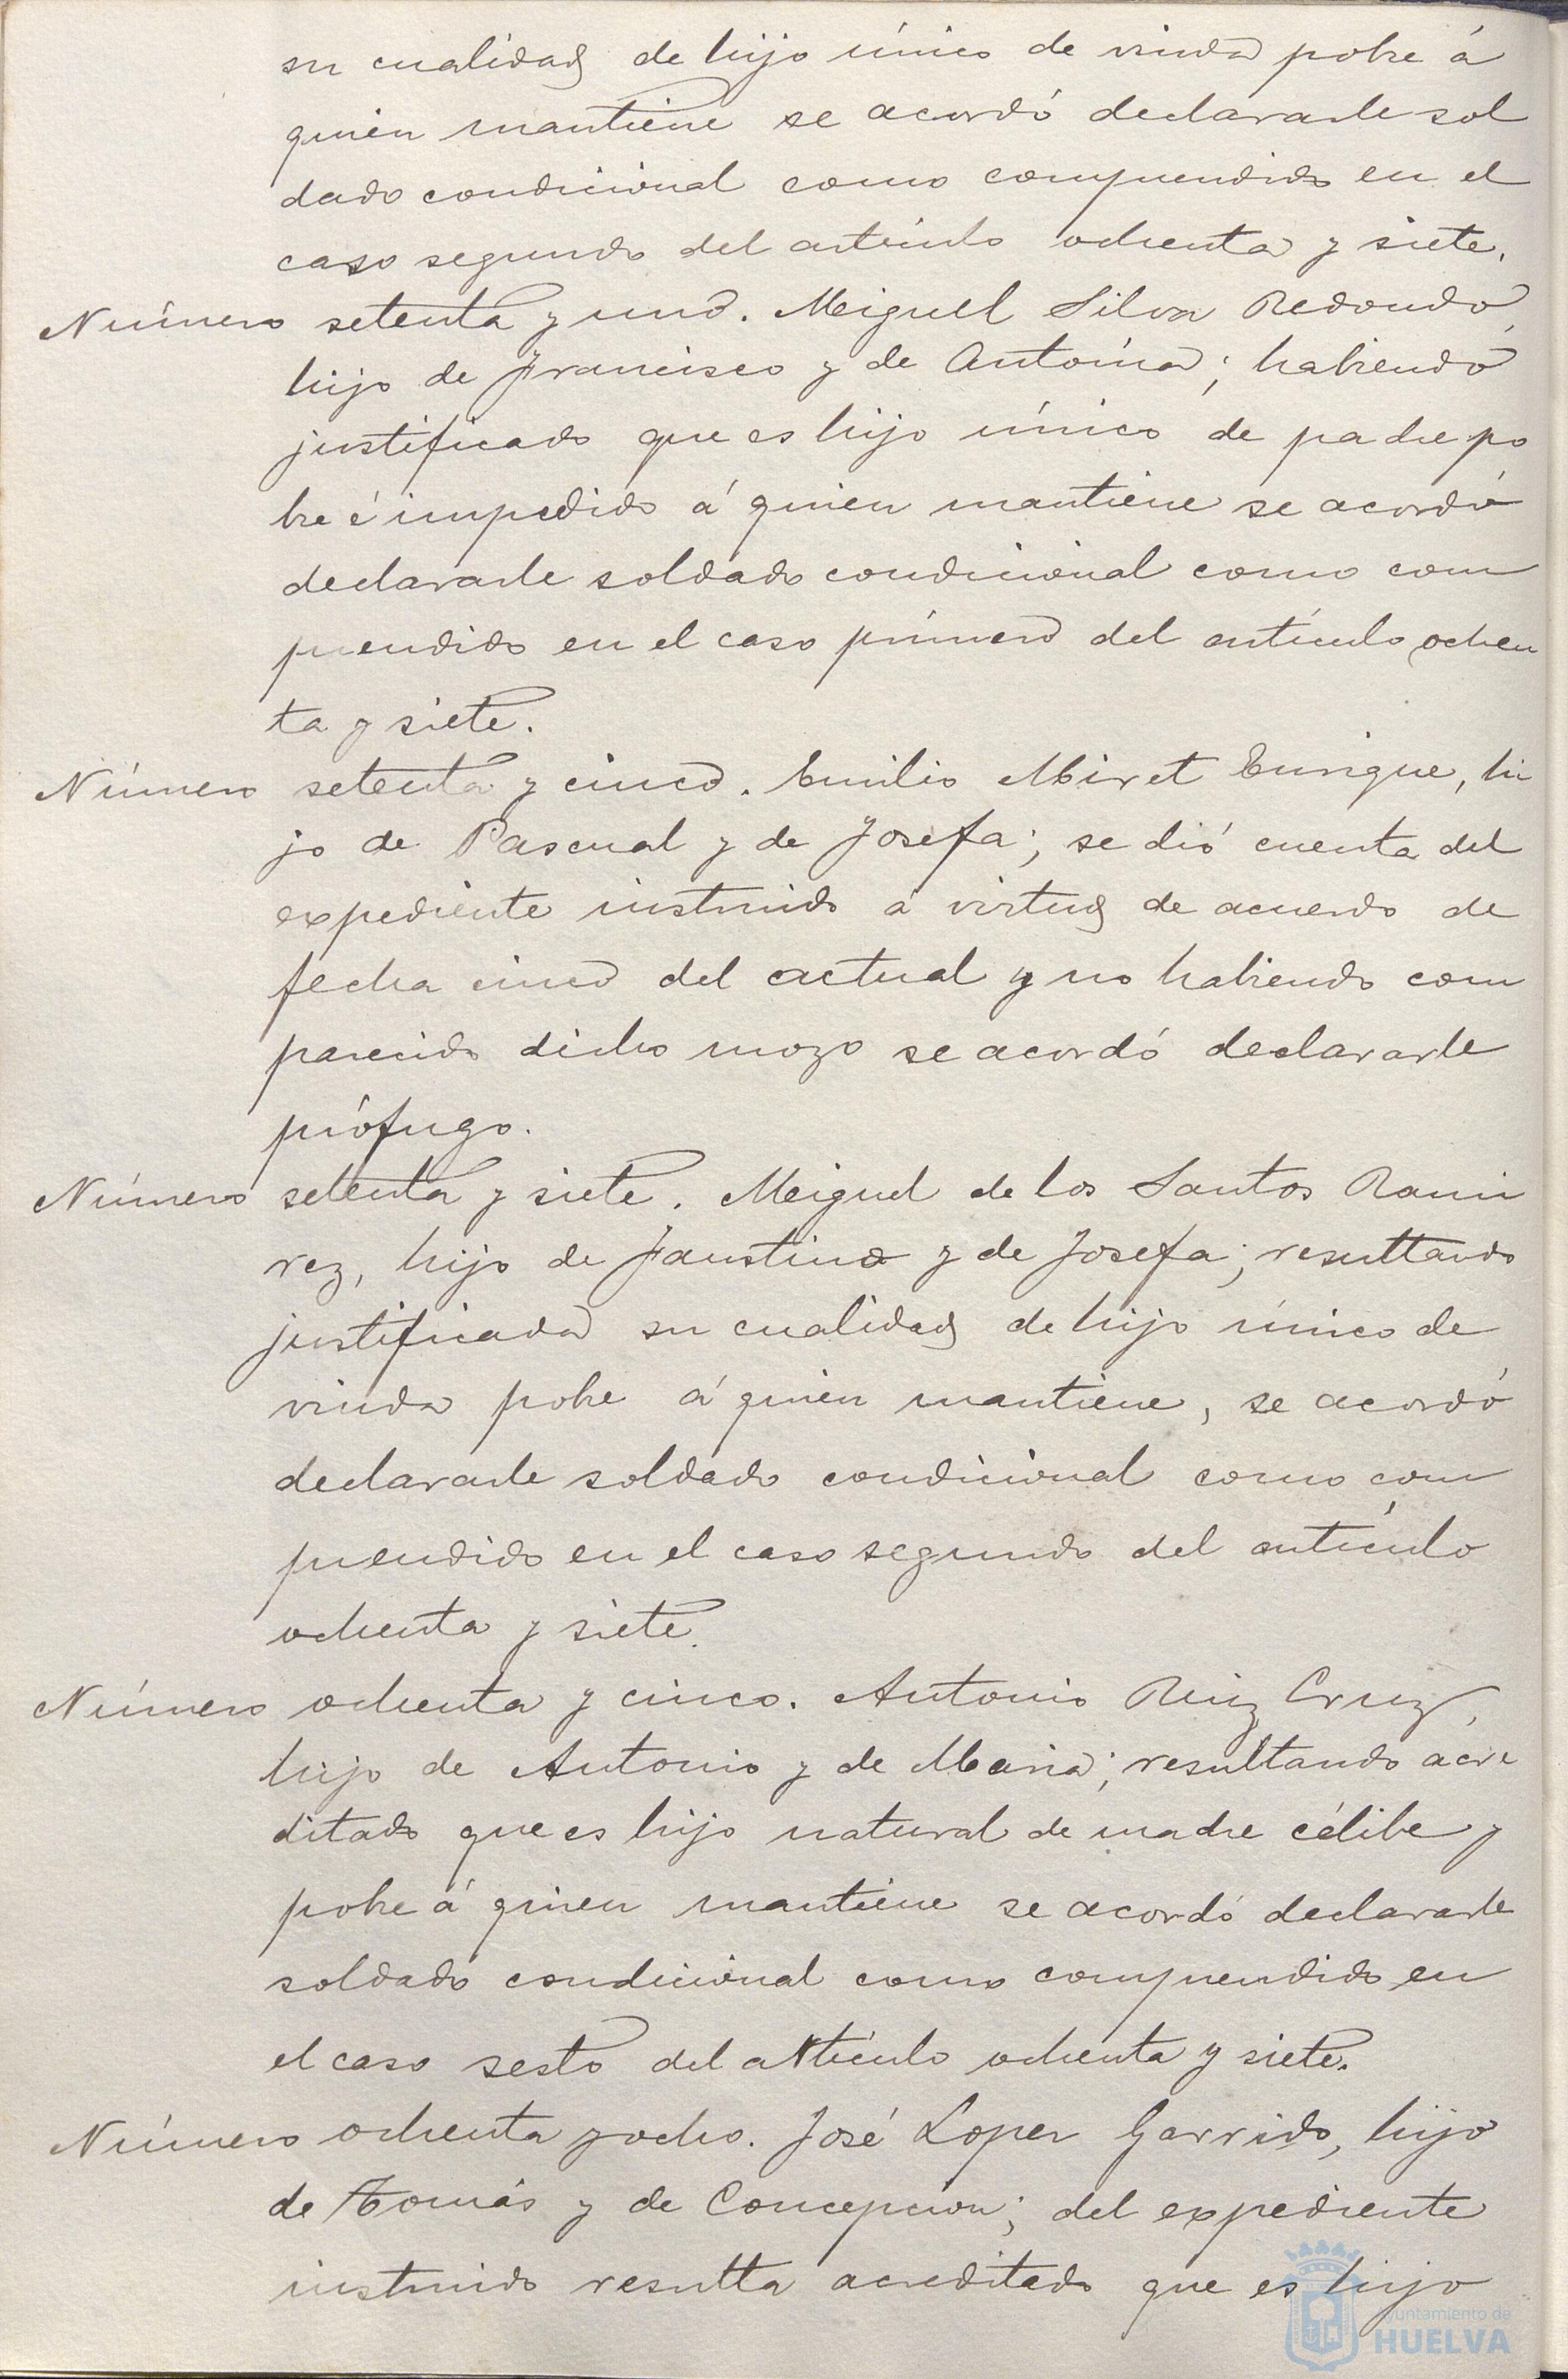 su cualidad de hijo único de viuda pobre á
quien mantiene se acordó declararle sol
dado condicional como comprendido en el
caso segundo del artículo ochenta y siete.
Número setenta y uno. Miguel Silva Redondo,
hijo de Francisco y de Antonia; habiendo
justificado que es hijo único de padre po
bre é impedido á quien mantiene se acordó
declararle soldado condicional como com
prendido en el caso primero del artículo ochen
ta y siete.
Número setenta y cinco. Emilio Miret Enrique, hi
jo de Pascual y de Josefa; se dió cuenta del
expediente instruido á virtud de acuerdo de
fecha cinco del actual y no habiendo com
parecido dicho mozo se acordó declararle
prófugo.
Número setenta y siete. Miguel de los Santos Rami
rez, hijo de Faustino y de Josefa; resultando
justificada su cualidad de hijo único de
viuda pobre á quien mantiene, se acordó
declararle soldado condicional como com
prendido en el caso segundo del artículo
ochenta y siete.
Número ochenta y cinco. Antonio Ruiz Cruz,
hijo de Antonio y de Maria; resultando acre
ditado que es hijo natural de madre célibe y
pobre á quien mantiene se acordó declararle
soldado condicional como comprendido en
el caso sesto del artículo ochenta y siete.
Número ochenta y ocho. José Lopez Garrido, hijo
de Tomás y de Concepcion; del expediente
instruido resulta acreditado que es hijo
Ayuntamiento de
HUELVA